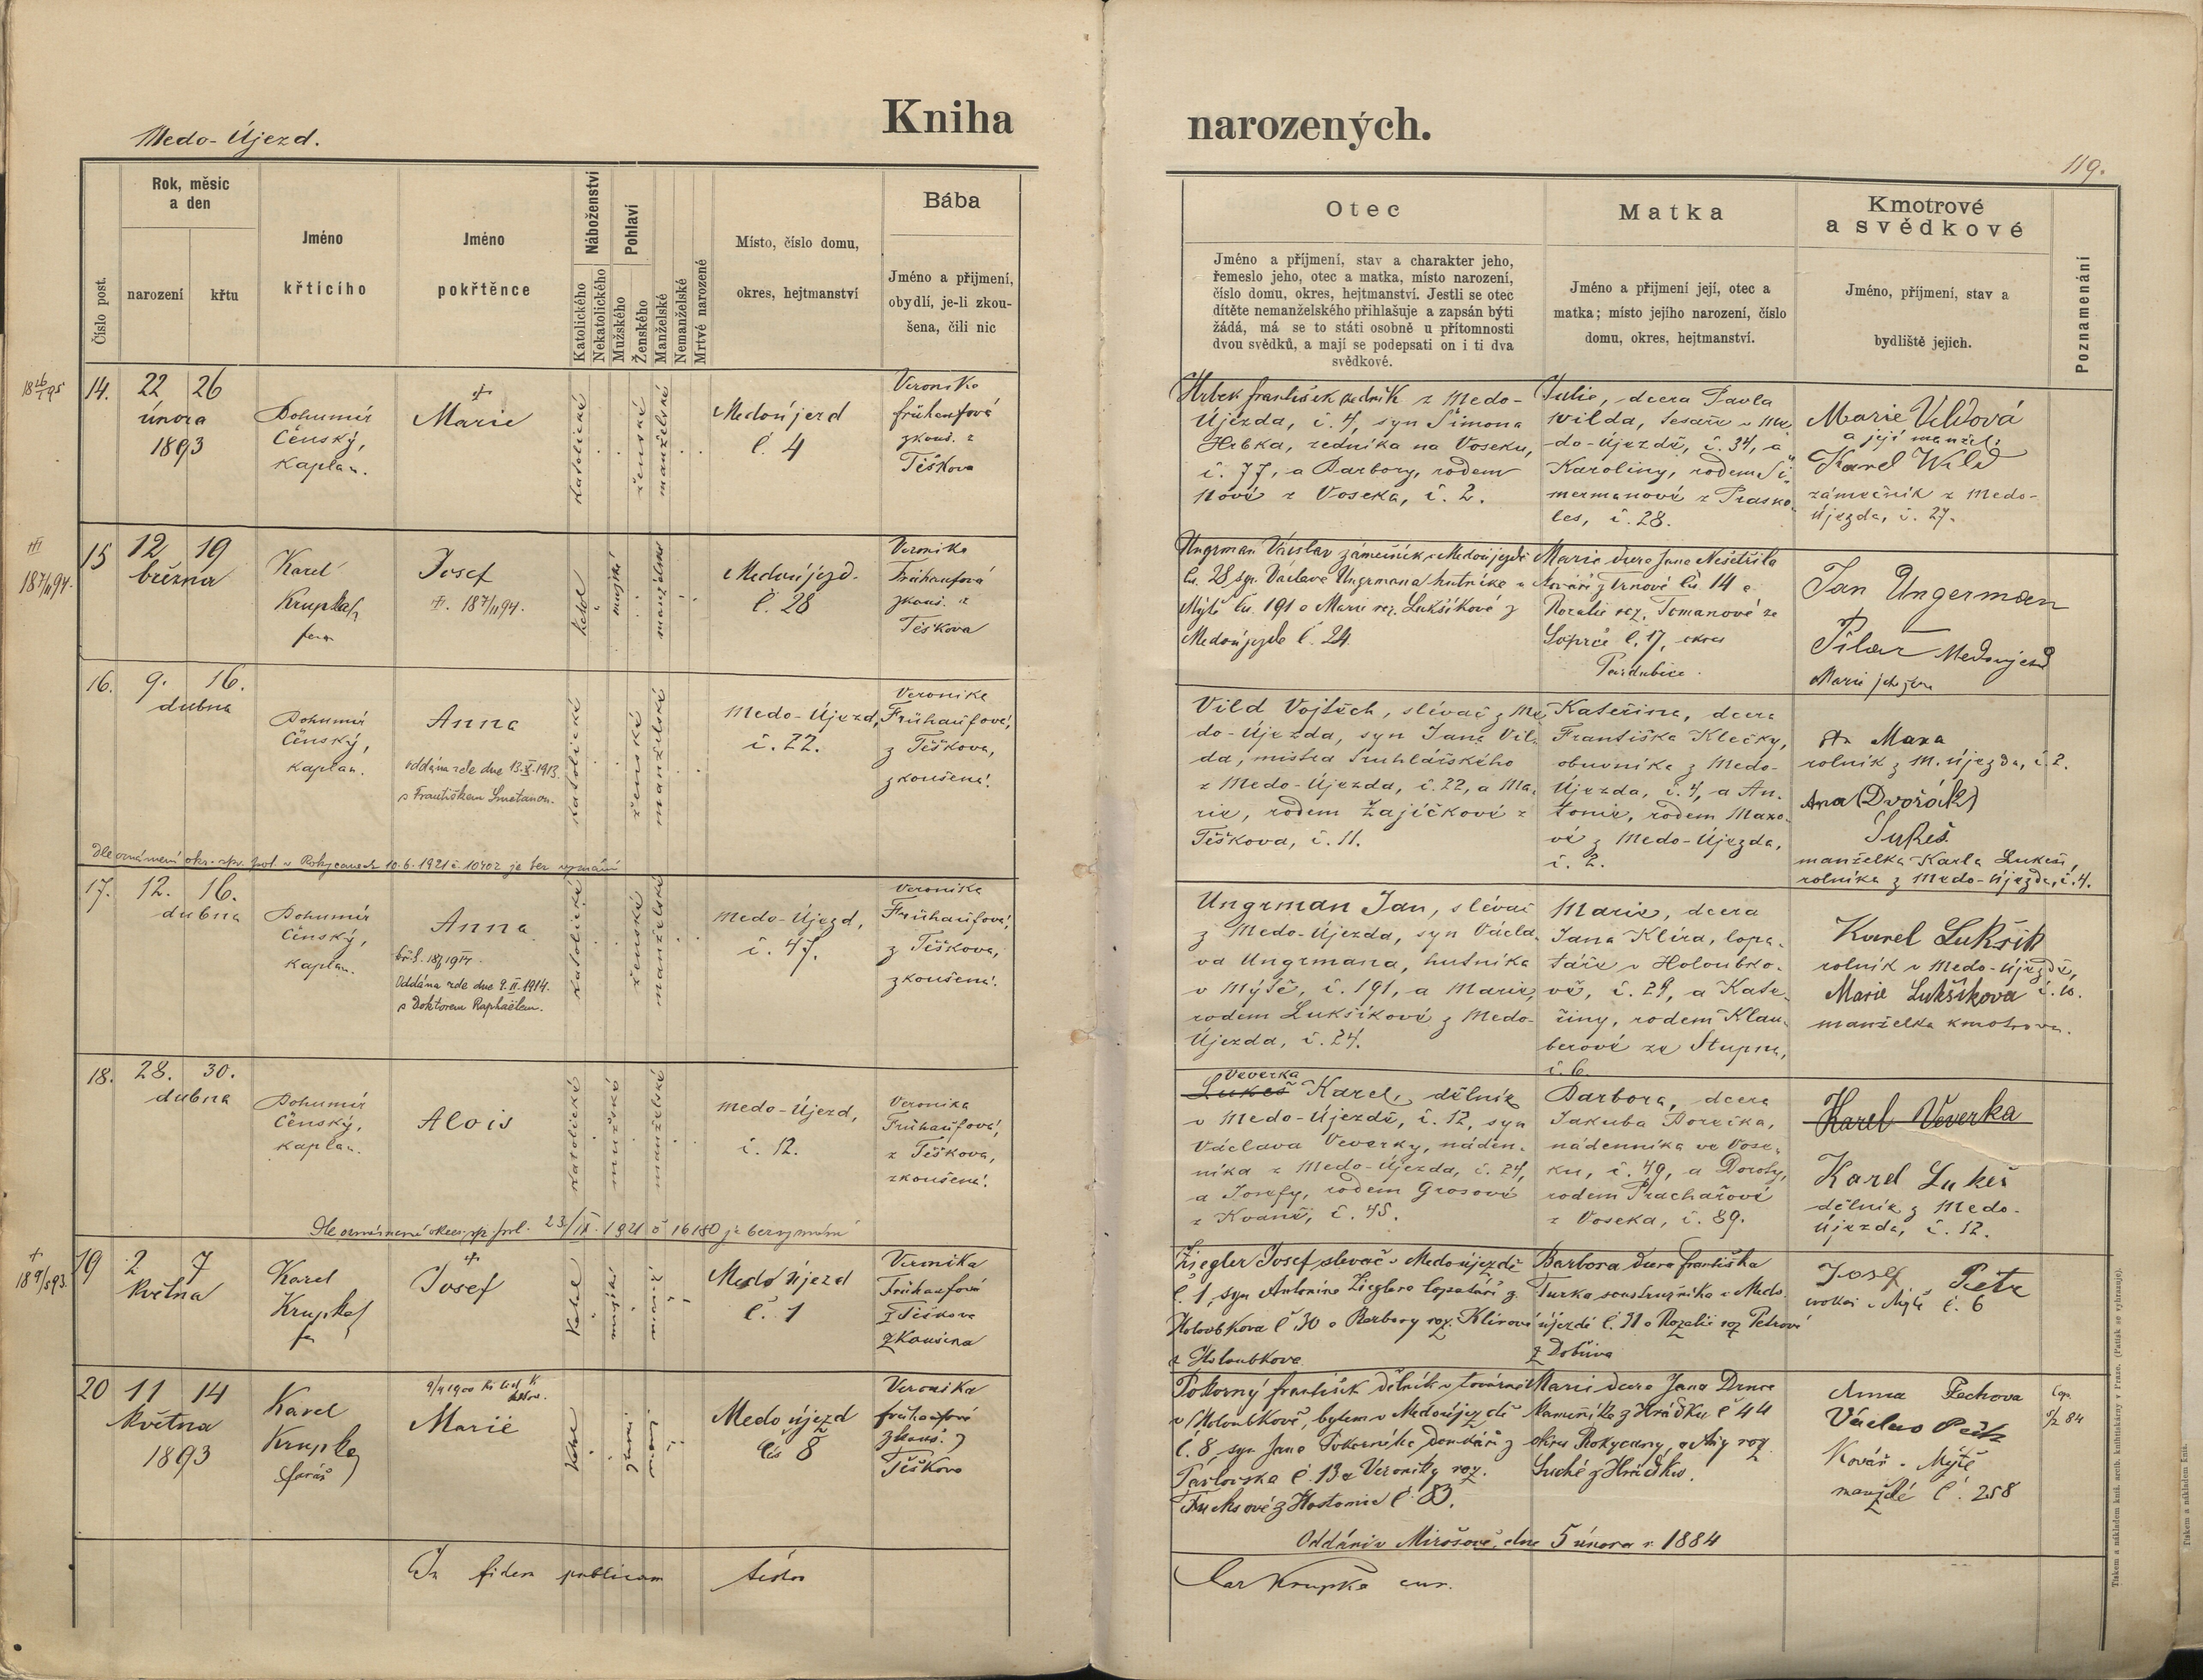 Medo-Újezd.
Kniha narozených.
119.
Číslo post.
Rok, měsíc
a den
narození
křtu
Jméno
křticího
Jméno
pokřtěnce
Náboženství
Katolického
Nekatolického
Pohlaví
Mužského
Ženského
Manželské
Nemanželské
Mrtvé narozené
Místo, číslo domu,
okres, hejtmanství
Bába
Jméno a přijmení,
obydlí, je-li zkou-
šena, čili nic
Otec
Jméno a příjmení, stav a charakter jeho,
řemeslo jeho, otec a matka, místo narození,
číslo domu, okres, hejtmanství. Jestli se otec
dítěte nemanželského přihlašuje a zapsán býti
žádá, má se to státi osobně u přítomnosti
dvou svědků, a mají se podepsati on i ti dva
svědkové.
Matka
Jméno a příjmení její, otec a
matka; místo jejího narození, číslo
domu, okres, hejtmanství.
Kmotrové
a svědkové
Jméno, příjmení, stav a
bydliště jejich.
Poznamenání
14.
22 26
února
1893
Bohumír
Čenský,
kaplan.
Marie
katolické
ženské
manželské
Medoújezd
č. 4
Veronika
Frühaufová
zkouš. z
Těškova
Hrbek František zedník z Medo-
Újezda, č. 4, syn Šimona
Hrbka, zedníka na Voseku,
č. 77, a Barbory, rodem
nové z Voseka, č. 2.
Julie, dcera Pavla
Vilda, tesaře v Me-
do-Újezdě, č. 34, a
Karoliny, rodem Ci-
mermanové z Prasko-
les, č. 28.
Marie Vildová
a její manžel,
Karel Wild
zámečník z Medo-
Újezda, č. 27.
15
12 19
března
Karel
Krupka
farar
Josef
187/II94.
katol
mužské
manželské
Medoújezd.
č. 28
Veronika
Frühaufová
zkouš. z
Těškova
Ungrman Václav zámečník v Medoújezdě
čís. 28 syn Václava Ungrmana hutníka v
Mýtě čís. 191 a Marie roz. Lukšíkové z
Medoújezda č. 24
Marie dcera Jana Nešetřila
kováře z Trnové čís 14 a
Rozalie roz. Tomanové ze
č. 17, okres
Pardubice.
Jan Ungerman
Pilar Medoujezd
Marie jeho žena
16.
9. 16.
dubna
Bohumír
Čenský,
kaplan.
Anna
oddána zde dne 13.X.1913.
s Františkem Smetanou.
katolické
ženské
manželské
Medo-Újezd,
č. 22.
Veronika
Frühaufová,
z Těškova,
zkoušená.
Vild Vojtěch, slévač z Me-
do-Újezda, syn Jana Vil-
da, mistra truhlářského
z Medo-Újezda, č. 22, a Ma-
rie, rodem Zajíčkové z
Těškova, č. 11.
Kateřina, dcera
Františka Klečky,
obuvníka z Medo-
Újezda, č. 4, a An-
tonie, rodem Maxo-
vé z Medo-Újezda,
č. 2.
Maxa
rolník z M. Újezda, č. 2.
Ana (Dvořák)
Lukeš
manželka Karla Lukeši,
rolníka z Medo-Újezda, č. 4.
Dle oznámení okr. spr. pol. v Rokycanech 10.6.1921 č. 10402 je bez vyznání
17.
12. 16.
dubna
Bohumír
Čenský,
kaplan.
Anna
Oddána zde dne 9.II.1914.
s Doktorem Raphaëlem.
katolické
ženské
manželské
Medo-Újezd,
č. 47.
Veronika
Frühaufová,
z Těškova,
zkoušená.
Ungrman Jan, slévač
z Medo-Újezda, syn Václa-
va Ungrmana, hutníka
v Mýtě, č. 191, a Marie,
rodem Lukšíkové z Medo-
Újezda, č. 24.
Marie, dcera
Jana Klíra, lopa-
táře v Holoubko-
vě, č. 29, a Kate-
řiny, rodem Klau-
berové ze Stupna,
č. 6.
Karel Lukšík
rolník v Medo-Újezdě,
č. 10.
Marie Lukšíkova
manželka kmotrova.
18.
28. 30.
dubna
Bohumír
Čenský,
kaplan.
Alois
katolické
mužské
manželské
Medo-Újezd,
č. 12.
Veronika
Frühaufová,
z Těškova,
zkoušená.
Veverka
Lukeš Karel, dělník
v Medo-Újezdě, č. 12, syn
Václava Veverky, náden-
níka z Medo-Újezda, č. 24,
a Josefy, rodem Grosové
z Kvaně, č. 45.
Barbora, dcera
Jakuba Boreika,
nádenníka ve Vose-
ku, č. 49, a Doroty,
rodem Prachařové
z Voseka, č. 89.
Karel Veverka
Karel Lukeš
dělník z Medo-
Újezda, č. 12.
Dle oznámení okres. sp. pol. 23/IX. 1921 č 16180 je bez vyznání
19
2 7
května
Karel
Krupka
Josef
Medo újezd
č. 1
Veronika
Frühaufová
z Těškova
zkoušena
Ziegler Josef slevač v Medoújezdě
č 1, syn Antonína Zieglera lopatáře z
Holoubkova č 30 a Barbory roz. Klírové
z Holoubkova
Barbora dcera Františka
Turka soustružníka v Medo
újezdě č. 31 a Rozalie roz Pětrové
z Dobřiva
Josef Petr
v Mýtě č. 6
20
11 14
května
1893
Karel
Krupka
farář
Marie
Medo újezd
čís 8
Veronika
Frühaufová
zkouš. z
Těškova
Pokorný František dělník v továrně
v Holoubkově, bytem v Medoújezdě
č. 8 syn Jana Pokorného domkáře z
Pavlovska č. 13 a Veroniky roz.
Fuchsové z Hostomic č. 83.
Marie dcera Jana Drnce
kameníka z Hrádku č 44
okres Rokycany, a Any roz.
Suché z Hrádku.
Anna Pechova
Václav
Kovář v Mýtě
manželé č. 258
Cop.
5/2 84
Oddáni v Mirošově, dne 5 února r. 1884
In fidem publicam
Car Krupka cur.
Tiskem a nákladem kníž. arcib. knihtiskárny v Praze. (Patisk se vyhrazuje).